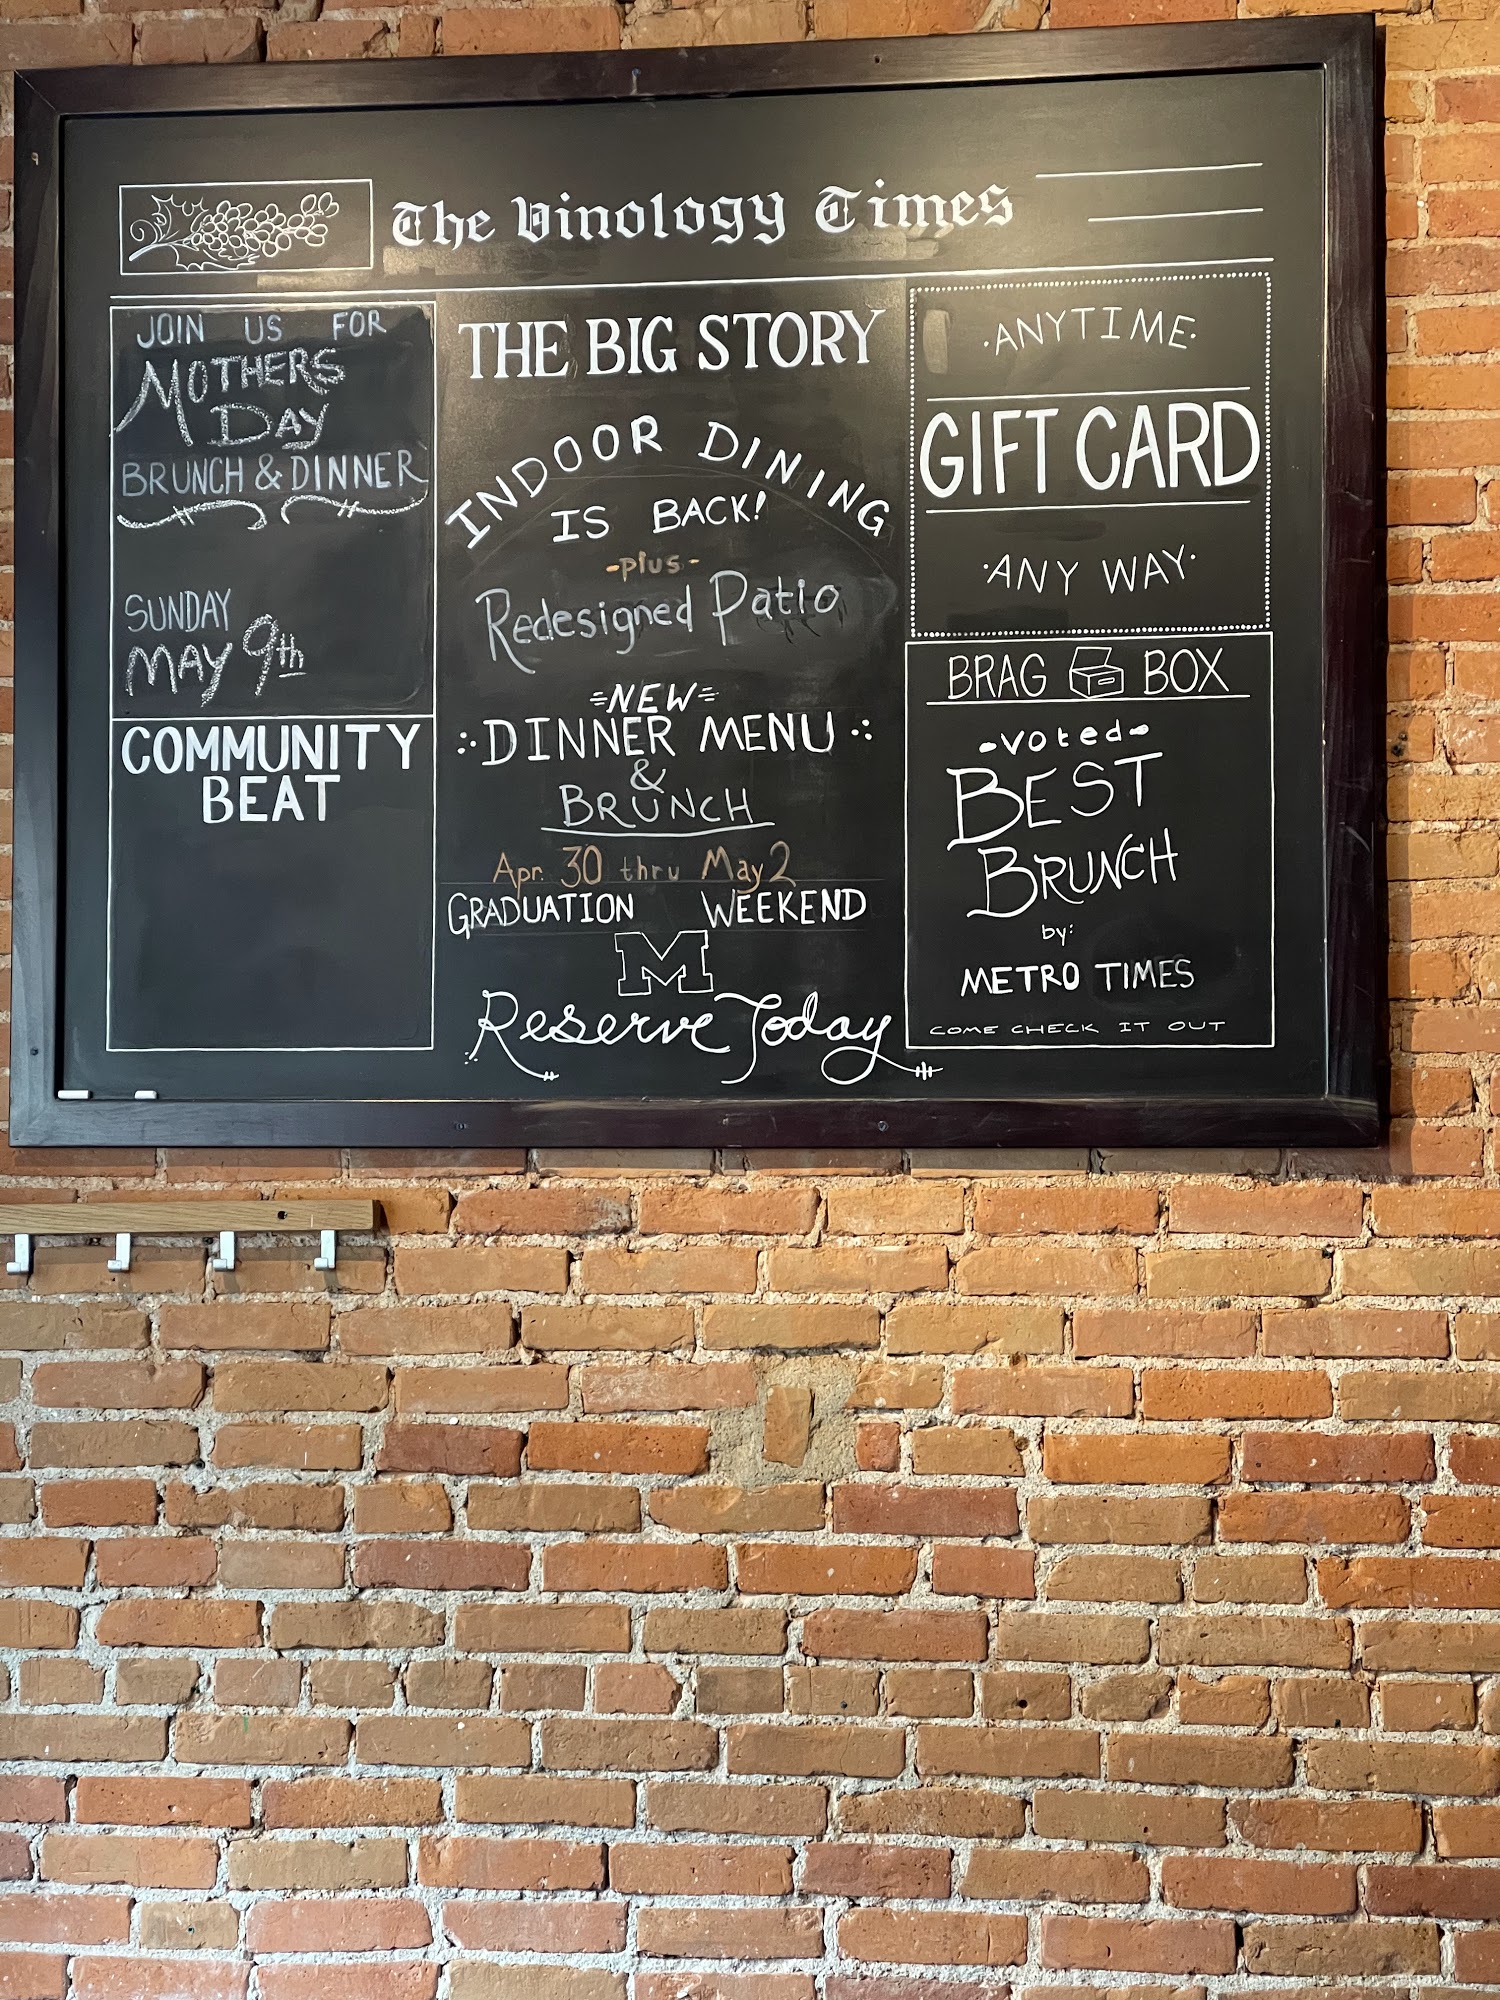 The Vinology Times
JOIN US FOR
MOTHERS
DAY
BRUNCH & DINNER
SUNDAY
MAY 9th
COMMUNITY
BEAT
THE BIG STORY
INDOOR DINING
IS BACK!
-plus-
Redesigned Patio
NEW
DINNER MENU
&
BRUNCH
Apr. 30 thru May 2
GRADUATION WEEKEND
M
Reserve Today
·ANYTIME·
GIFT CARD
·ANY WAY·
BRAG BOX
-voted-
BEST
BRUNCH
by:
METRO TIMES
COME CHECK IT OUT